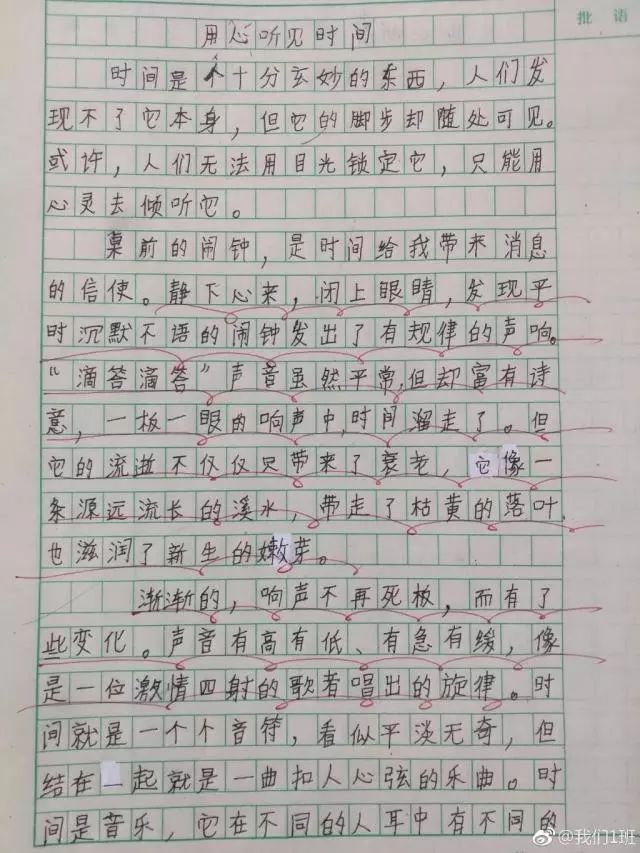 批 语
用心听见时间
时间是个十分玄妙的东西，人们发
现不了它本身，但它的脚步却随处可见。
或许，人们无法用目光锁定它，只能用
心灵去倾听它。
桌前的闹钟，是时间给我带来消息
的信使。静下心来，闭上眼睛，发现平
时沉默不语的闹钟发出了有规律的声响。
“滴答滴答”声音虽然平常，但却富有诗
意，一板一眼的响声中，时间溜走了。但
它的流逝不仅仅只带来了衰老，它像一
条源远流长的溪水，带走了枯黄的落叶，
也滋润了新生的嫩芽。
渐渐的，响声不再死板，而有了
些变化。声音有高有低、有急有缓，像
是一位激情四射的歌者唱出的旋律。时
间就是一个个音符，看似平淡无奇，但
结在一起就是一曲扣人心弦的乐曲。时
间是音乐，它在不同的人耳中有不同的
@我们1班